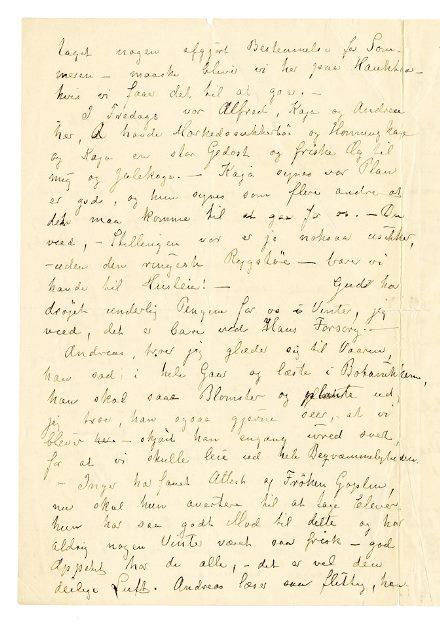 taget nogen afgjørt Bestemmelse for Som-
meren – maaske bliver vi her paa Haukka-
hvis vi faar det til at gaa. –
I Fredags var Alfred, Kaja og Andrea
her, A havde Markedssukkertøi og Honningkage
og Kaja en stor Gedost og friske Æg til
mig og Julekage. – Kaja synes vor Plan
er gode, og hun synes som flere andre at
det maa komme til at gaa for os. – Du
veed, – Stillingen vor er jo noksaa usikker,
– uden den ringeste Rygstøe – bare vi
havde til Husleie! – Gud har
drøiet underlig Pengene for os i Vinter, jeg
veed, det er bare ved Hans Forsorg. –
Andreas, tror jeg glæder sig til Vaaren,
han sad i hele Gaar og læste i Botanikken,
han skal saa Blomster og plante ud,
jeg tror, han ogsaa gjerne seer, at vi
bliver – skjønt han engang ivred svært,
for at vi skulle leie ud hele
– Inger har faaet Attest af Frøken
nu skal hun avertere til at tage Elever,
hun har saa godt Mod til dette og har
aldrig nogen Vinter været saa frisk – god
Appetit har de alle, – det er vel den
deilige Luft. Andreas læser saa flittig, han